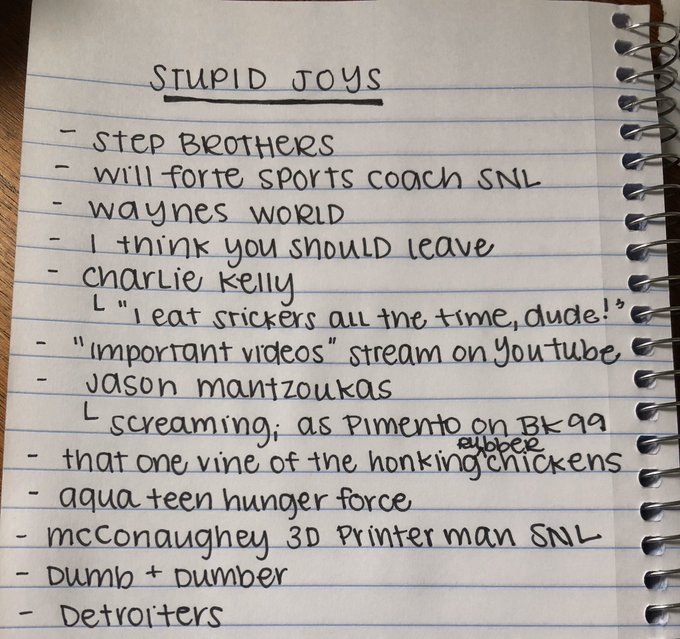 STUPID JOYS
- STEP BROTHERS
- will forte sports coach SNL
- waynes WORLD
- I think you should leave
- charlie kelly
└ "I eat stickers all the time, dude!"
- "important videos" stream on youtube
- jason mantzoukas
└ screaming; as Pimento on BK99
- that one vine of the honking rubber chickens
- aqua teen hunger force
- mcconaughey 3D Printer man SNL
- Dumb + Dumber
- Detroiters